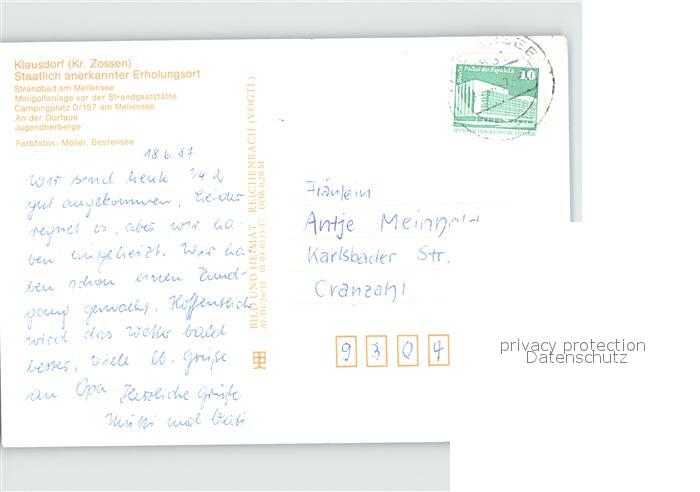 Klausdorf (Kr. Zossen)
Staatlich anerkannter Erholungsort
Strandbad am Mellensee
Minigolfanlage vor der Strandgaststätte
Campingplatz D/157 am Mellensee
An der Dorfaue
Jugendherberge
Farbfotos: Möller, Bestensee
18.6.87
Wir sind heute 1/4 2
gut angekommen, leider
regnet es, aber wir ha-
ben eingeheizt. Wir ha-
ben schon einen Rund-
gang gemacht. Hoffentlich
wird das Wetter bald
besser, viele lb. Grüße
an Opa. Herzliche Grüße
Mutti und Vati
BILD UND HEIMAT REICHENBACH (VOGTL)
Berlin Palast der Republik
10
DEUTSCHE DEMOKRATISCHE REPUBLIK
Fräulein
Antje Meinhold
Karlsbader Str.
Cranzahl
9 3 0 4
privacy protection
Datenschutz